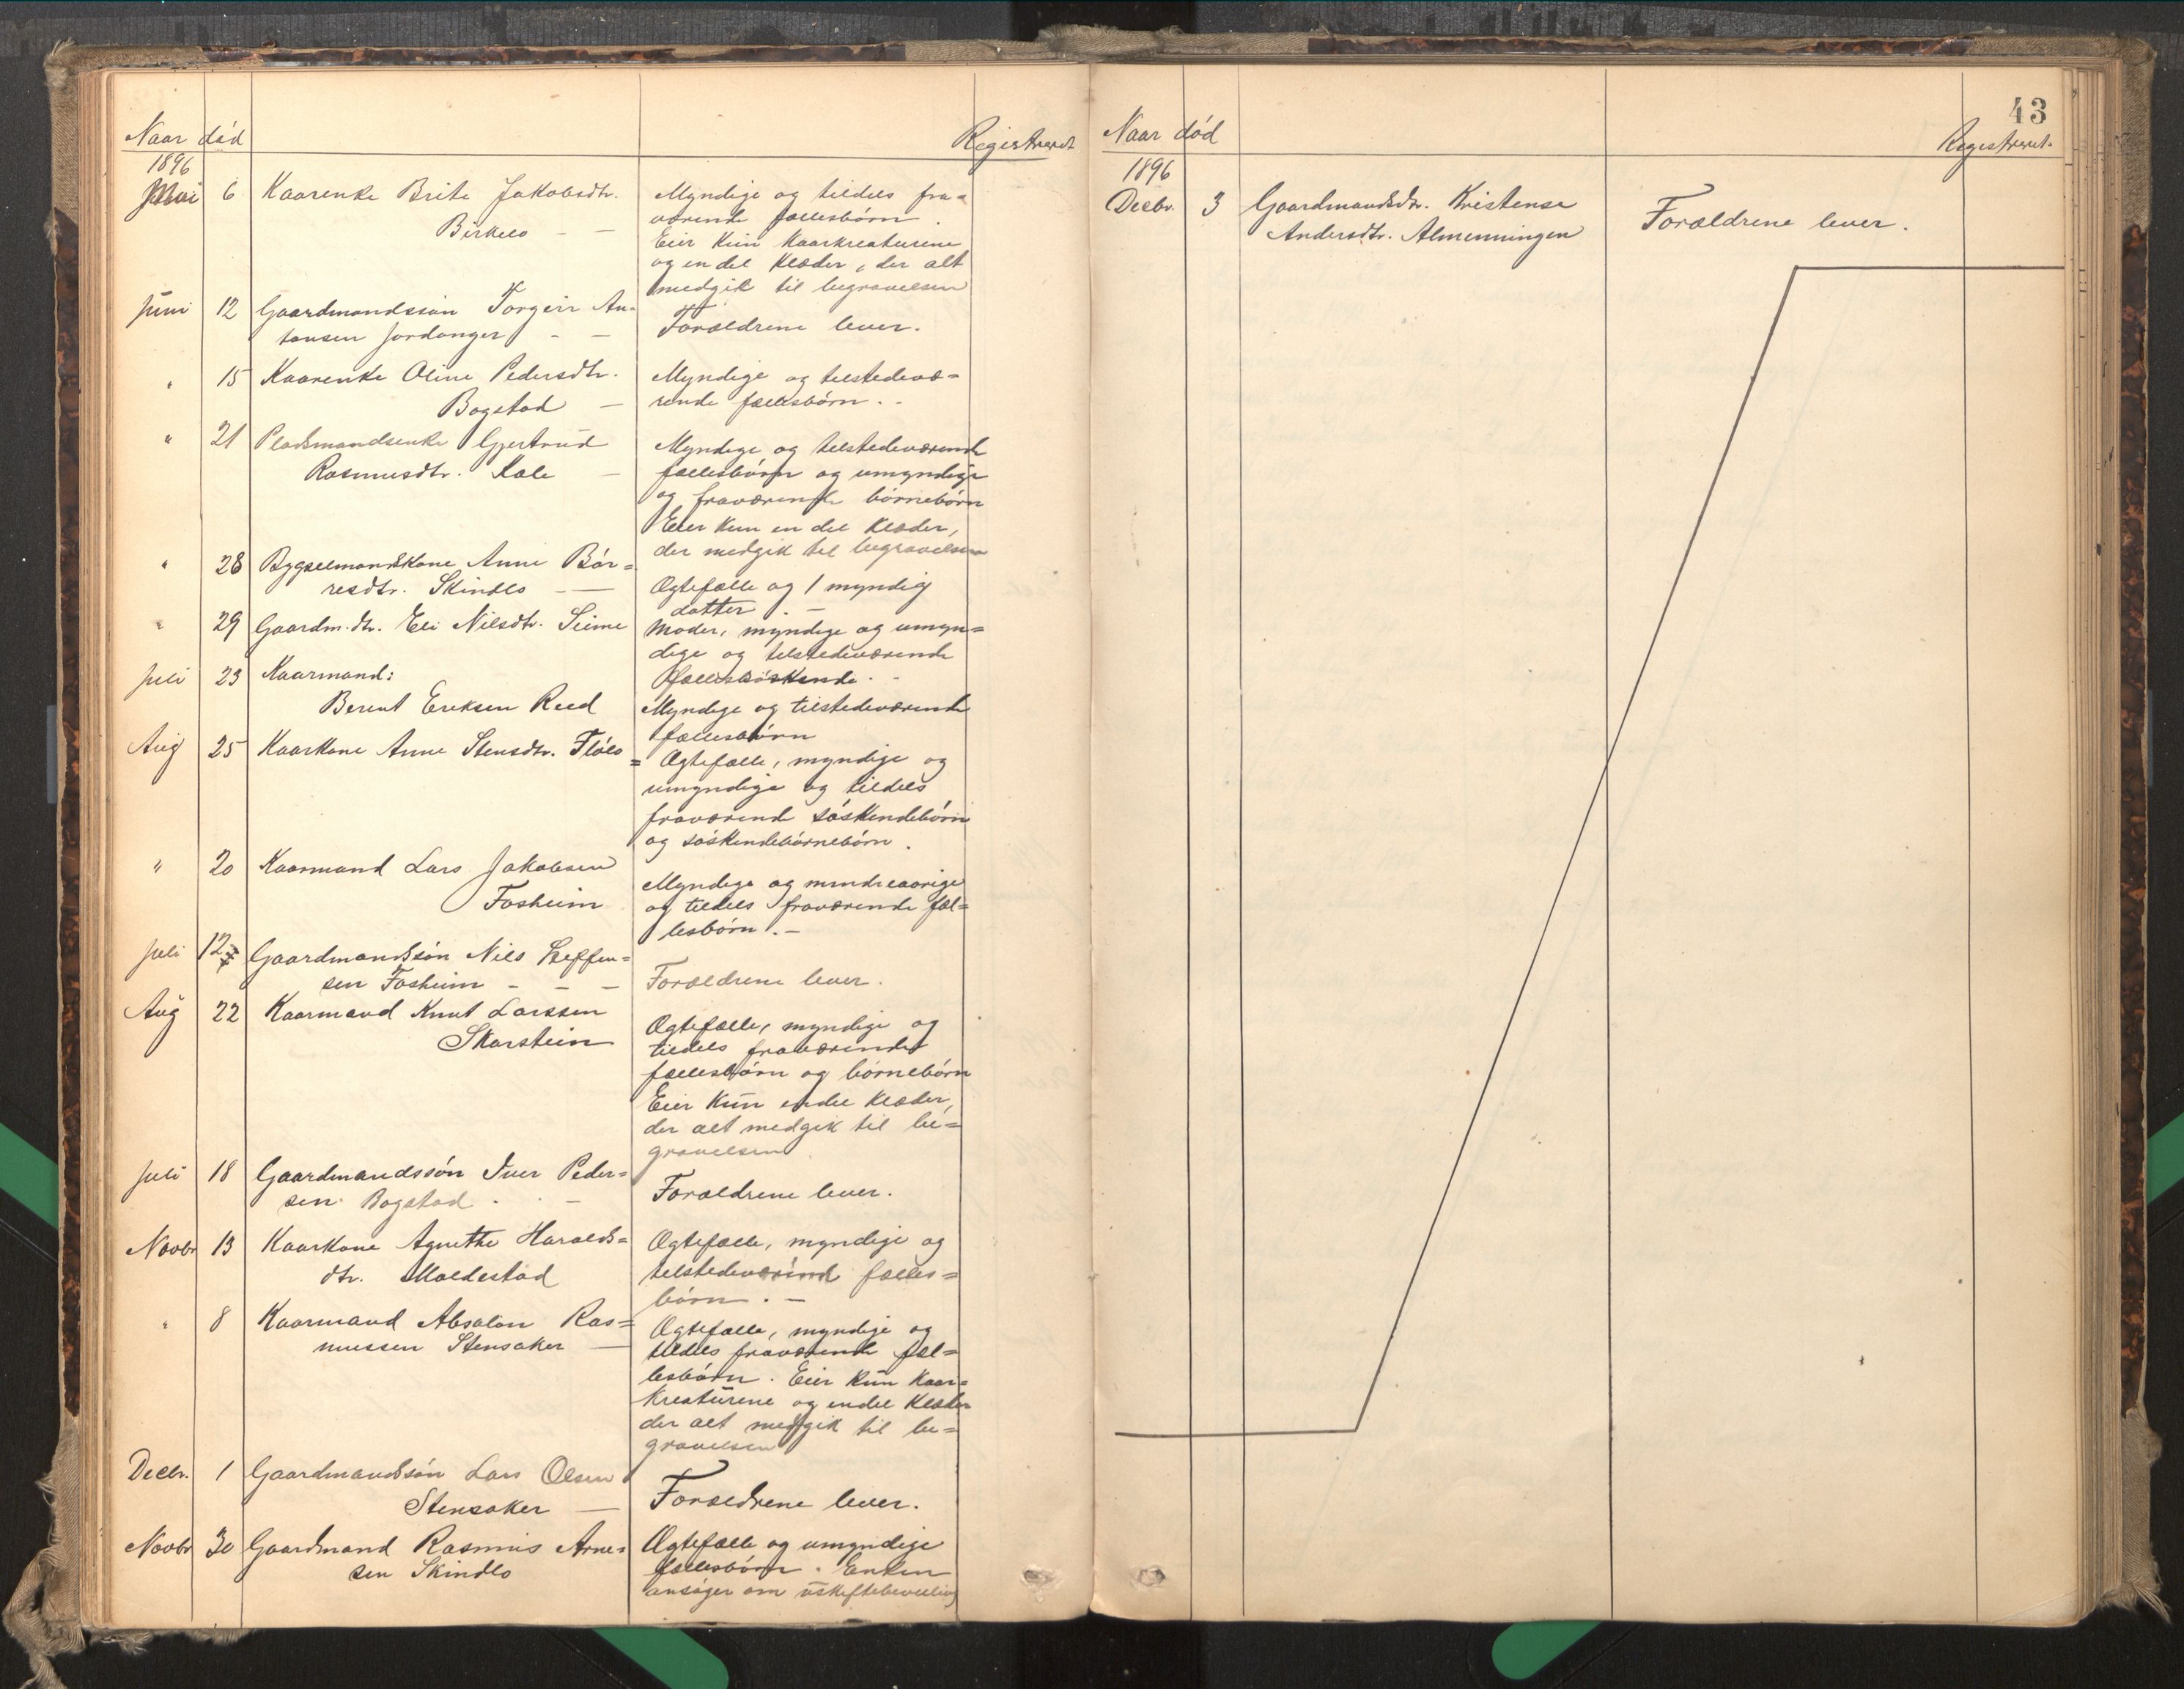 Naar död
Registreret
1896
Mai 6 Kaarenke Brite Jakobsdtr. Myndige og tildels fra=
Birkelo – – værende fællesbörn.
Eier kun kaarkreaturene
og en del klæder, der alt
medgik til begravelsen
Juni 12 Gaardmandssön Torgeir An=
tonsen Jordanger – – Forældrene lever.
" 15 Kaarenke Oline Pedersdtr. Myndige og tilstedevæ=
Bogstad – rende fællesbörn. -
" 21 Pladsmandsenke Gjertrud Myndige og tilstedeværende
Rasmusdtr. Kale – fællesbörn og umyndige
og fraværende börnebörn
Eier kun en del klæder,
der medgik til begravelsen
" 28 Bygselmandskone Anne Bör=
resdtr. Skinlo – Ægtefælle og 1 myndig
datter. –
" 29 Gaardm.dtr. Eli Nilsdtr. Seime Moder, myndige og umyn=
dige og tilstedeværende
Juli 23 Kaarmand: fællessöskende. -
Berent Eriksen Reed Myndige og tilstedeværende
fællesbörn
Aug 25 Kaarkone Anne Stensdtr. Flölo = Ægtefælle, myndige og
umyndige og tildels
fraværende söskendebörn
og söskendebörnebörn.
" 20 Kaarmand Lars Jakobsen Myndige og mindreaarige
Fosheim og tildels fraværende fæl=
lesbörn. –
Juli 12 Gaardmandssön Nils Steffen=
sen Fosheim – – – Forældrene lever.
Aug 22 Kaarmand Knut Larssen Ægtefælle, myndige og
Skarstein tildels fraværende
fællesbörn og börnebörn
Eier kun endel klæder,
der alt medgik til be=
gravelsen
Juli 18 Gaardmandssön Iver Peder=
sen Bogstad – Forældrene lever.
Novbr 13 Kaarkone Agnethe Haralds= Ægtefælle, myndige og
dtr. Moldestad tilstedeværend fælles=
börn. –
" 8 Kaarmand Absalon Ras= Ægtefælle, myndige og
mussen Stensaker – tildels fraværende fæl=
lesbörn. Eier kun kaar=
kreaturene og endel klæder
der alt medgik til be=
gravelsen
Decbr. 1 Gaardmandssön Lars Olsen
Stensaker – Forældrene lever.
Novbr 30 Gaardmand Rasmus Arne= Ægtefælle og umyndige
sen Skinlo fællesbörn. Enken
ansöger om uskiftebevilling
43
Naar död
Registreret.
1896
Decbr. 3 Gaardmandsdtr. Kristense
Andersdtr. Almenningen Forældrene lever.